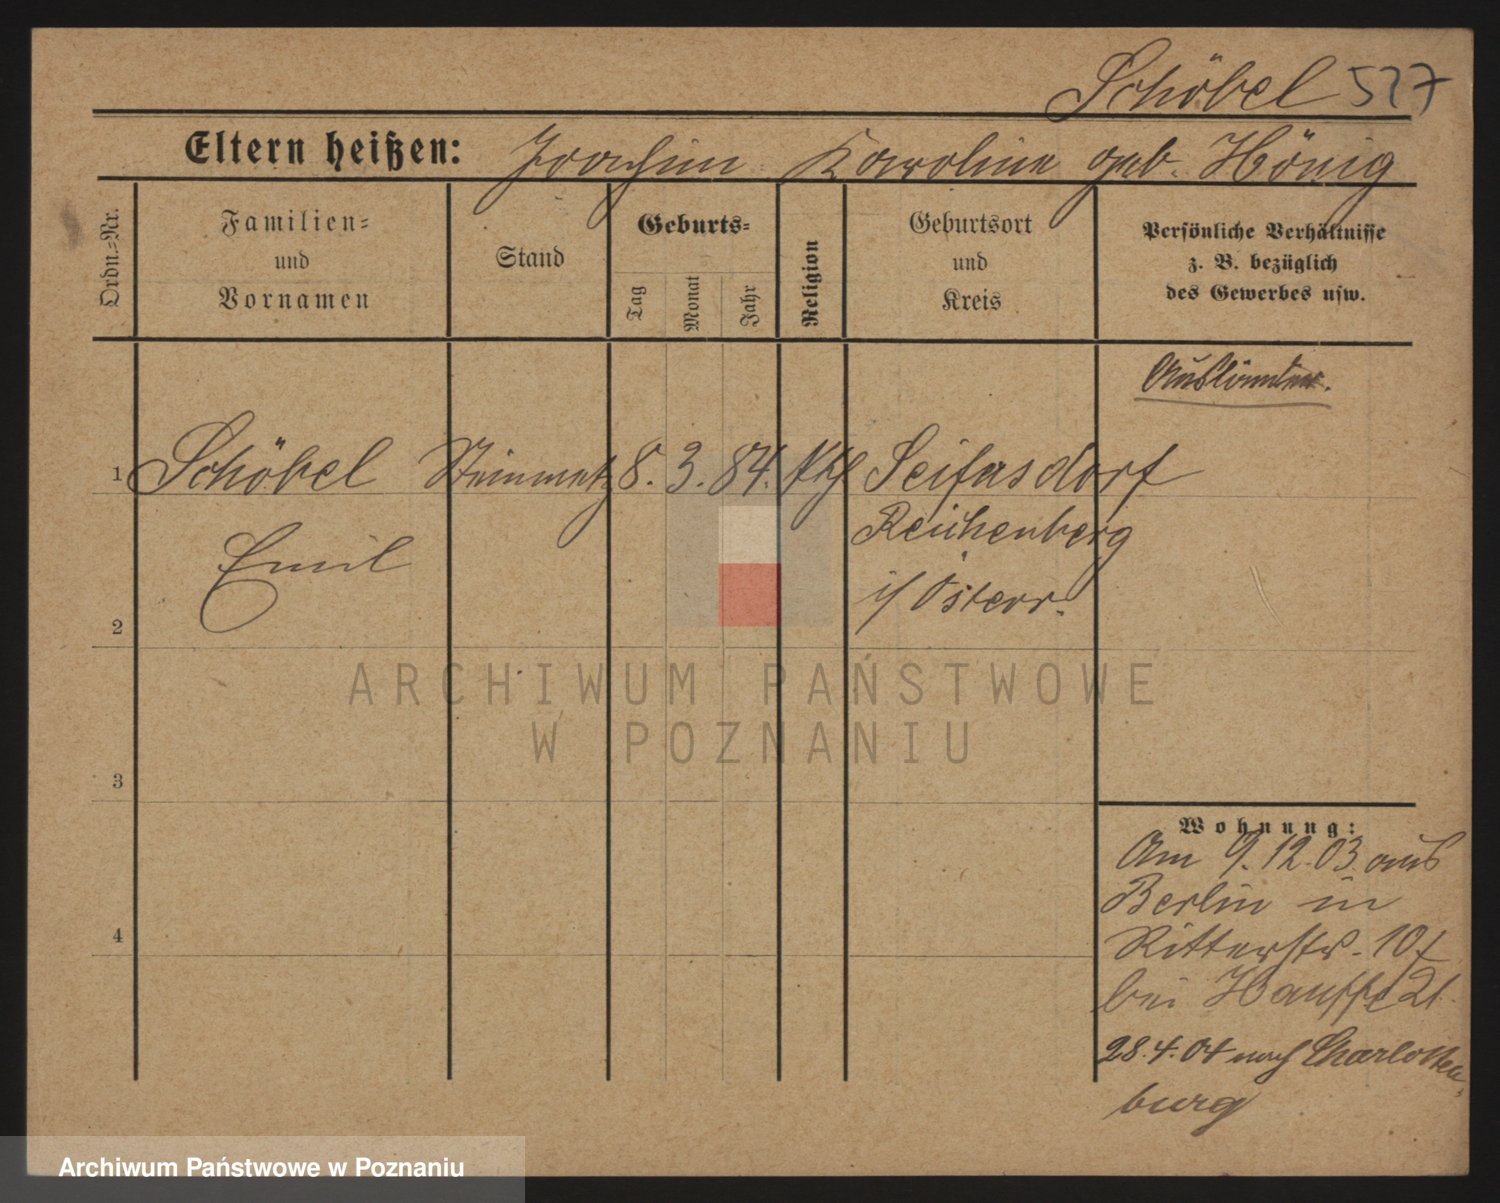 Schöbel 527
Eltern heißen: Joachim Karoline geb. Hönig
Ordn.=Nr.
Familien=
und
Vornamen
Stand
Geburts=
Tag
Monat
Jahr
Religion
Geburtsort
und
Kreis
Persönliche Verhältnisse
z. B. bezüglich
des Gewerbes usw.
Ausländer.
1 Schöbel Steinmetz 8. 3. 84. kth Seifersdorf
Emil
Reichenberg
i/Österr.
2
ARCHIWUM PAŃSTWOWE
W POZNANIU
3
4
Wohnung:
Am 9.12.03 aus
Berlin in
Ritterstr. 10
bei Hauffe
28.4.04 nach Charlotten
burg
Archiwum Państwowe w Poznaniu